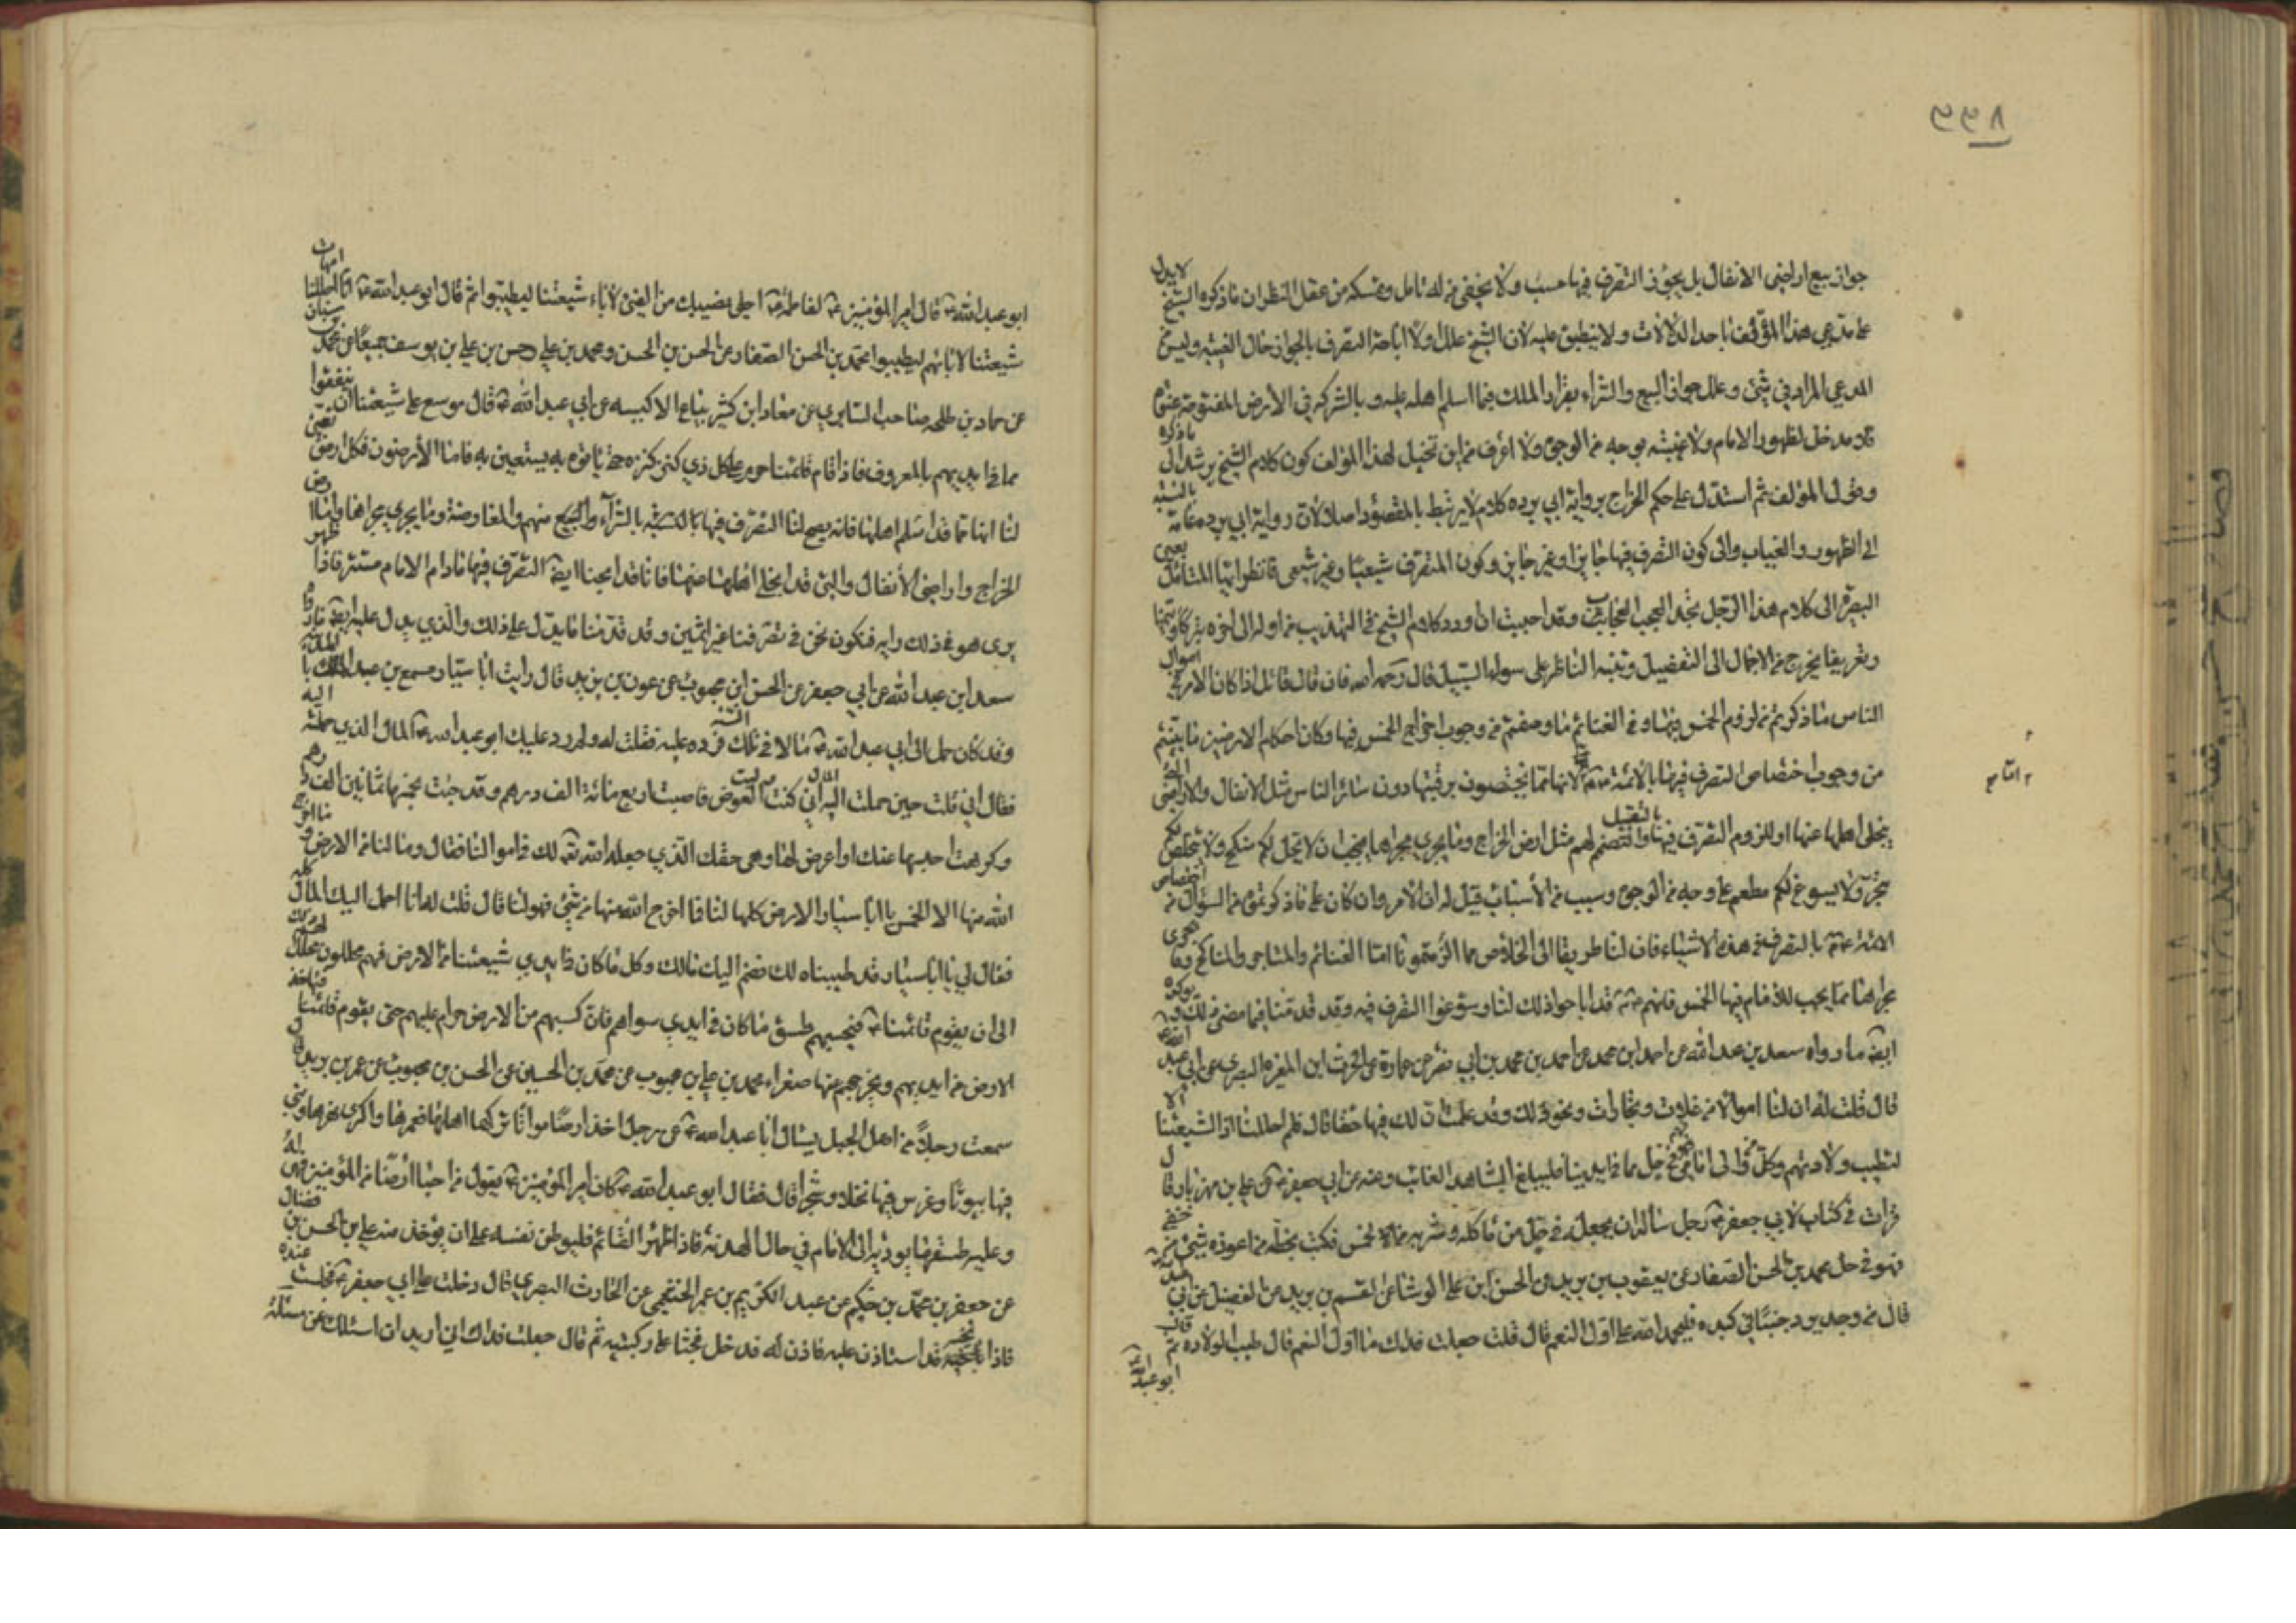 جواز بيع اراضى الانفال بل يجوز التصرف فيها حسب ولا يخفى من له تامل ومسكه من عقل النظر ان ما ذكره الشيخ لا يدل
على مدعى هذا المؤلف باحد الدلالات ولا ينطبق عليه لان الشيخ علل اولا اباحة التصرف بالجواز حال الغيبة وليس من
المدعى المراد في شئ وعلل جواز البيع والشراء بفراد الملك فيما اسلم اهله عليه و بالشركه في الأرض المفتوحة عنوة
فلا مدخل لظهور الامام ولا غيبته بوجه من الوجوه ولا اعرف من اين تخيل لهذا المؤلف كون كلام الشيخ يرشد الى ما ذكره
وقول المؤلف ثم استدل على حكم الخراج برواية ابي برده كلام لا يرتبط بالمقصود اصلا لان رواية ابي برده عامة بالنسبة
الى الظهور والغياب والى كون التصرف فيها جايزا وغير جايز وكون المتصرف شيعيا وغير شيعى فانظر ايها المتامل بعين
البصيرة الى كلام هذا الرجل تجد العجب العجاب وقد احببت ان اورد كلام الشيخ في التهذيب من اوله الى اخره تبركا وتيمنا
وتعريفا يخرج من الاجمال الى التفصيل وتنبه الناظر على سواء السبيل قال رحمه الله فان قال قائل اذا كان الامر في اموال
الناس ما ذكرتم من لزوم الخمس فيها وفي الغنائم ما وصفتم من وجوب اخراج الخمس فيها وكان احكام الارضين ما بينتم
من وجوب اختصاص التصرف فيها بالائمة لانها مما يختصون برقبتها دون سائر الناس مثل الانفال والاراضى التي
ينجلى اهلها عنها او للزوم التصرف فيها بالتقبيل والتضمين لهم مثل ارض الخراج وما يجرى مجراها فيجب ان لا يحل لكم منكح ولا يتخلص لكم
متجر ولا يسوغ لكم مطعم على وجه من الوجوه وسبب من الأسباب قيل له ان الأمر وان كان على ما ذكرتموه من السؤال من اختصاص
الائمة بالتصرف في هذه الاشياء فان لنا طريقا الى الخلاص مما الزمتمونا اما الغنائم والمتاجر والمناكح وما يجرى
مجراها مما يجب للامام فيها الخمس فانهم قد اباحوا ذلك لنا وسوغوا التصرف فيه وقد قدمنا فيما مضى ذلك ويؤكده
ايضا ما رواه سعد بن عبد الله عن احمد ابن محمد عن احمد بن محمد بن ابي نصر عن ابي عمارة عن الحرث ابن المغيره البصرى عن ابي عبد الله
قال قلت له ان لنا اموالا من غلات وتجارات ونحو ذلك وقد علمت ان لك فيها حقا قال فلم احللنا اذا لشيعتنا الا
لتطيب ولادتهم وكل من والى ابائى فهم في حل مما في ايدينا فليبلغ الشاهد الغائب وعنه عن ابي جعفر عن علي بن مهزيار قال
قرات في كتاب لابي جعفر رجل ساله ان يجعله في حل من ماكله ومشربه من الخمس فكتب بخطه من اعوزه شئ من حقى
فهو في حل محمد بن الحسن الصفار عن يعقوب بن يزيد عن الحسن ابن علي الوشا عن القسم بن بريد عن الفضيل عن ابي عبد الله
قال من وجد برد حبنا في كبده فليحمد الله على اول النعم قال قلت جعلت فداك ما اول النعم قال طيب الولاده ثم قال
ابو عبد الله
ابو عبد الله قال امير المؤمنين لفاطمة احلى نصيبك من الفئ لآباء شيعتنا ليطيبوا ثم قال ابو عبد الله انا احللنا امهات
شيعتنا لابائهم ليطيبوا محمد بن الحسن الصفار عن الحسن بن الحسن ومحمد بن علي وحسن بن علي بن يوسف جميعا عن محمد بن سنان
عن حماد بن طلحه صاحب السابري عن معاذ ابن كثير بياع الاكيسه عن ابي عبد الله قال موسع على شيعتنا ان ينفقوا
مما في ايديهم بالمعروف فاذا قام قائمنا حرم على كل ذي كنز كنزه حتى ياتوه به يستعين به فاما الأرضون فكل ارض تعين
لنا انها مما قد اسلم اهلها فانه يصح لنا التصرف فيها بالشراء والبيع منهم والمعاوضة وما يجرى مجراها واما ارض
الخراج واراضى الأنفال والتى قد انجلى اهلها عنها فانا قد ابحنا ايضا التصرف فيها مادام الامام مستترا فاذا ظهر
يرى هو في ذلك رايه فنكون نحن في تصرفنا غير اثمين وقد قدمنا ما يدل على ذلك والذي يدل عليه ايضا ما رواه
سعد ابن عبد الله عن ابي جعفر عن الحسن ابن محبوب عن عمر بن يزيد قال رايت ابا سيار مسمع بن عبد الملك بالمدينة
وقد كان حمل الى ابي عبد الله مالا في تلك السنه فرده عليه فقلت له لم رد عليك ابو عبد الله المال الذي حملته اليه
فقال اني قلت حين حملت اليه المال اني كنت وليت الغوص فاصبت اربع مائة الف درهم وقد جئت بخمسها ثمانين الف درهم
وكرهت احبسها عنك او اعرض لها وهى حقك الذي جعله الله تعالى لك في اموالنا فقال ومالنا من الارض وما اخرج
الله منها الا الخمس يا ابا سيار الارض كلها لنا فما اخرج الله منها من شئ فهو لنا قال قلت له انا احمل اليك المال كله
فقال لي يا ابا سيار قد طيبناه لك فضم اليك مالك وكل ما كان في ايدي شيعتنا من الارض فهم محللون محلل لهم ذلك
الى ان يقوم قائمنا فيجبيهم طسق ما كان في ايدي سواهم فان كسبهم من الارض حرام عليهم حتى يقوم قائمنا فياخذ
الارض من ايديهم ويخرجهم عنها صغراء محمد بن علي بن محبوب عن محمد بن الحسين عن الحسن بن محبوب عن عمر بن يزيد قال
سمعت رجلا من اهل الجبل يسال ابا عبد الله عن رجل اخذ ارضا مواتا تركها اهلها فعمرها واكرى نهرها وبنى
فيها بيوتا وغرس فيها نخلا وشجرا قال فقال ابو عبد الله كان امير المؤمنين يقول من احيا ارضا من المؤمنين فهى له
وعليه طسقها يوديه الى الامام في حال الهدنة فاذا ظهر القائم فليوطن نفسه على ان يؤخذ منه علي بن الحسن بن فضال
عن جعفر بن محمد بن حكيم عن عبد الكريم بن عمر الخثعمى عن الحارث البصري قال دخلت على ابي جعفر فجلست عنده
فاذا نجيه قد استاذن عليه فاذن له فدخل فجثا على ركبتيه ثم قال جعلت فداك اني اريد ان اسئلك عن مسئلة